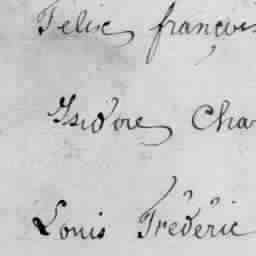 Felix françois
Isidore Cha
Louis Frédéric